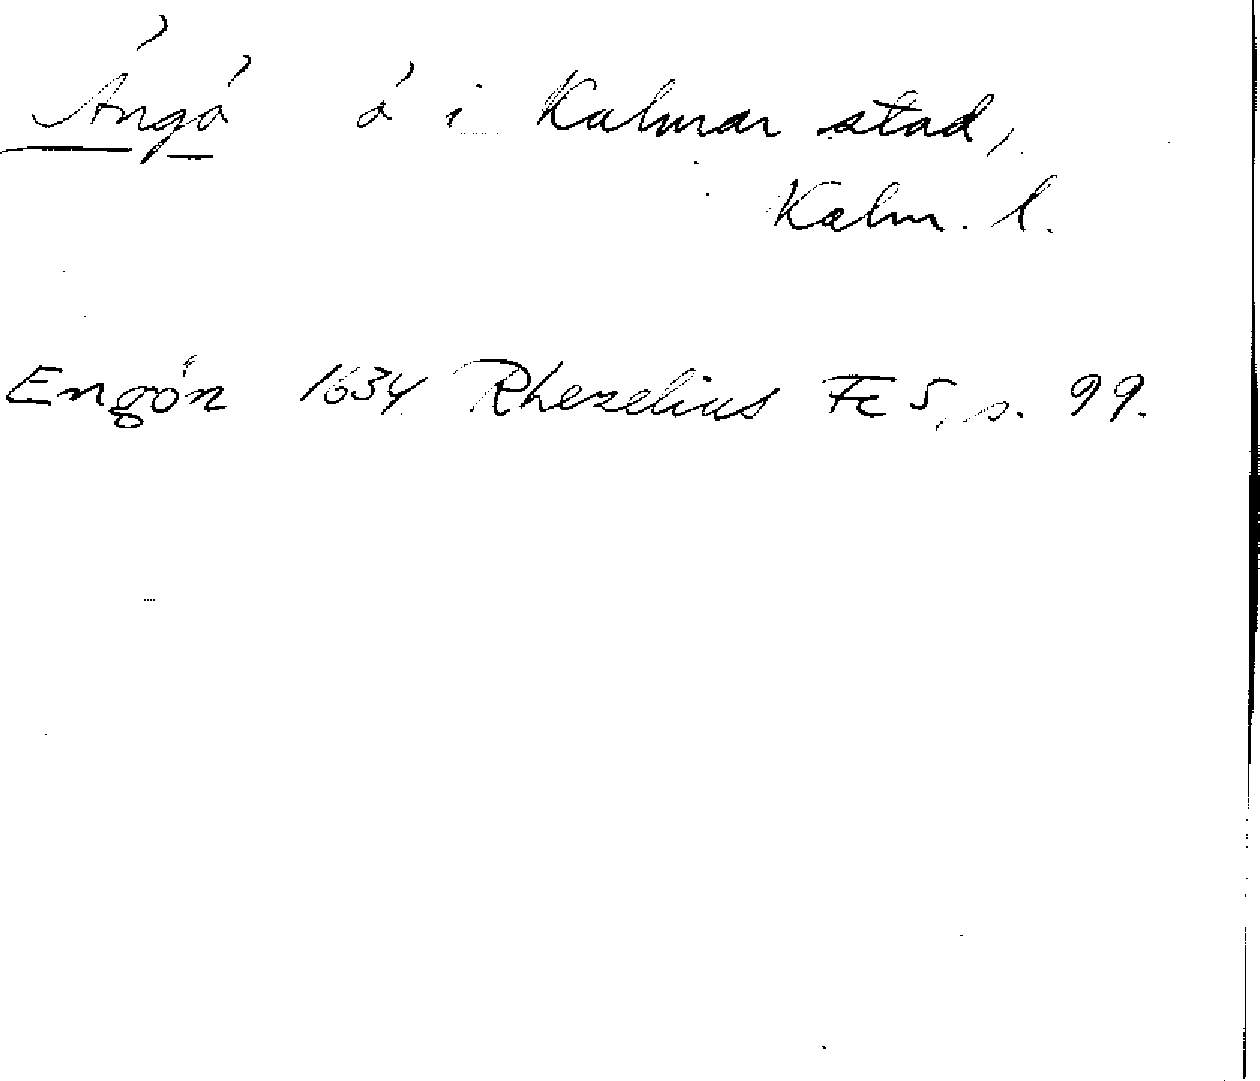 Ängö ö i Kalmar stad,
Kalm. l.
Engön 1634 Rhezelius Fc 5, s. 99.